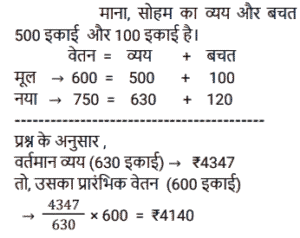 माना, सोहम का व्यय और बचत
500 इकाई और 100 इकाई है।
वेतन = व्यय + बचत
मूल → 600 = 500 + 100
नया → 750 = 630 + 120
--------------------------------------------
प्रश्न के अनुसार ,
वर्तमान व्यय (630 इकाई) → ₹4347
तो, उसका प्रारंभिक वेतन (600 इकाई)
→ 4347/630 × 600 = ₹4140